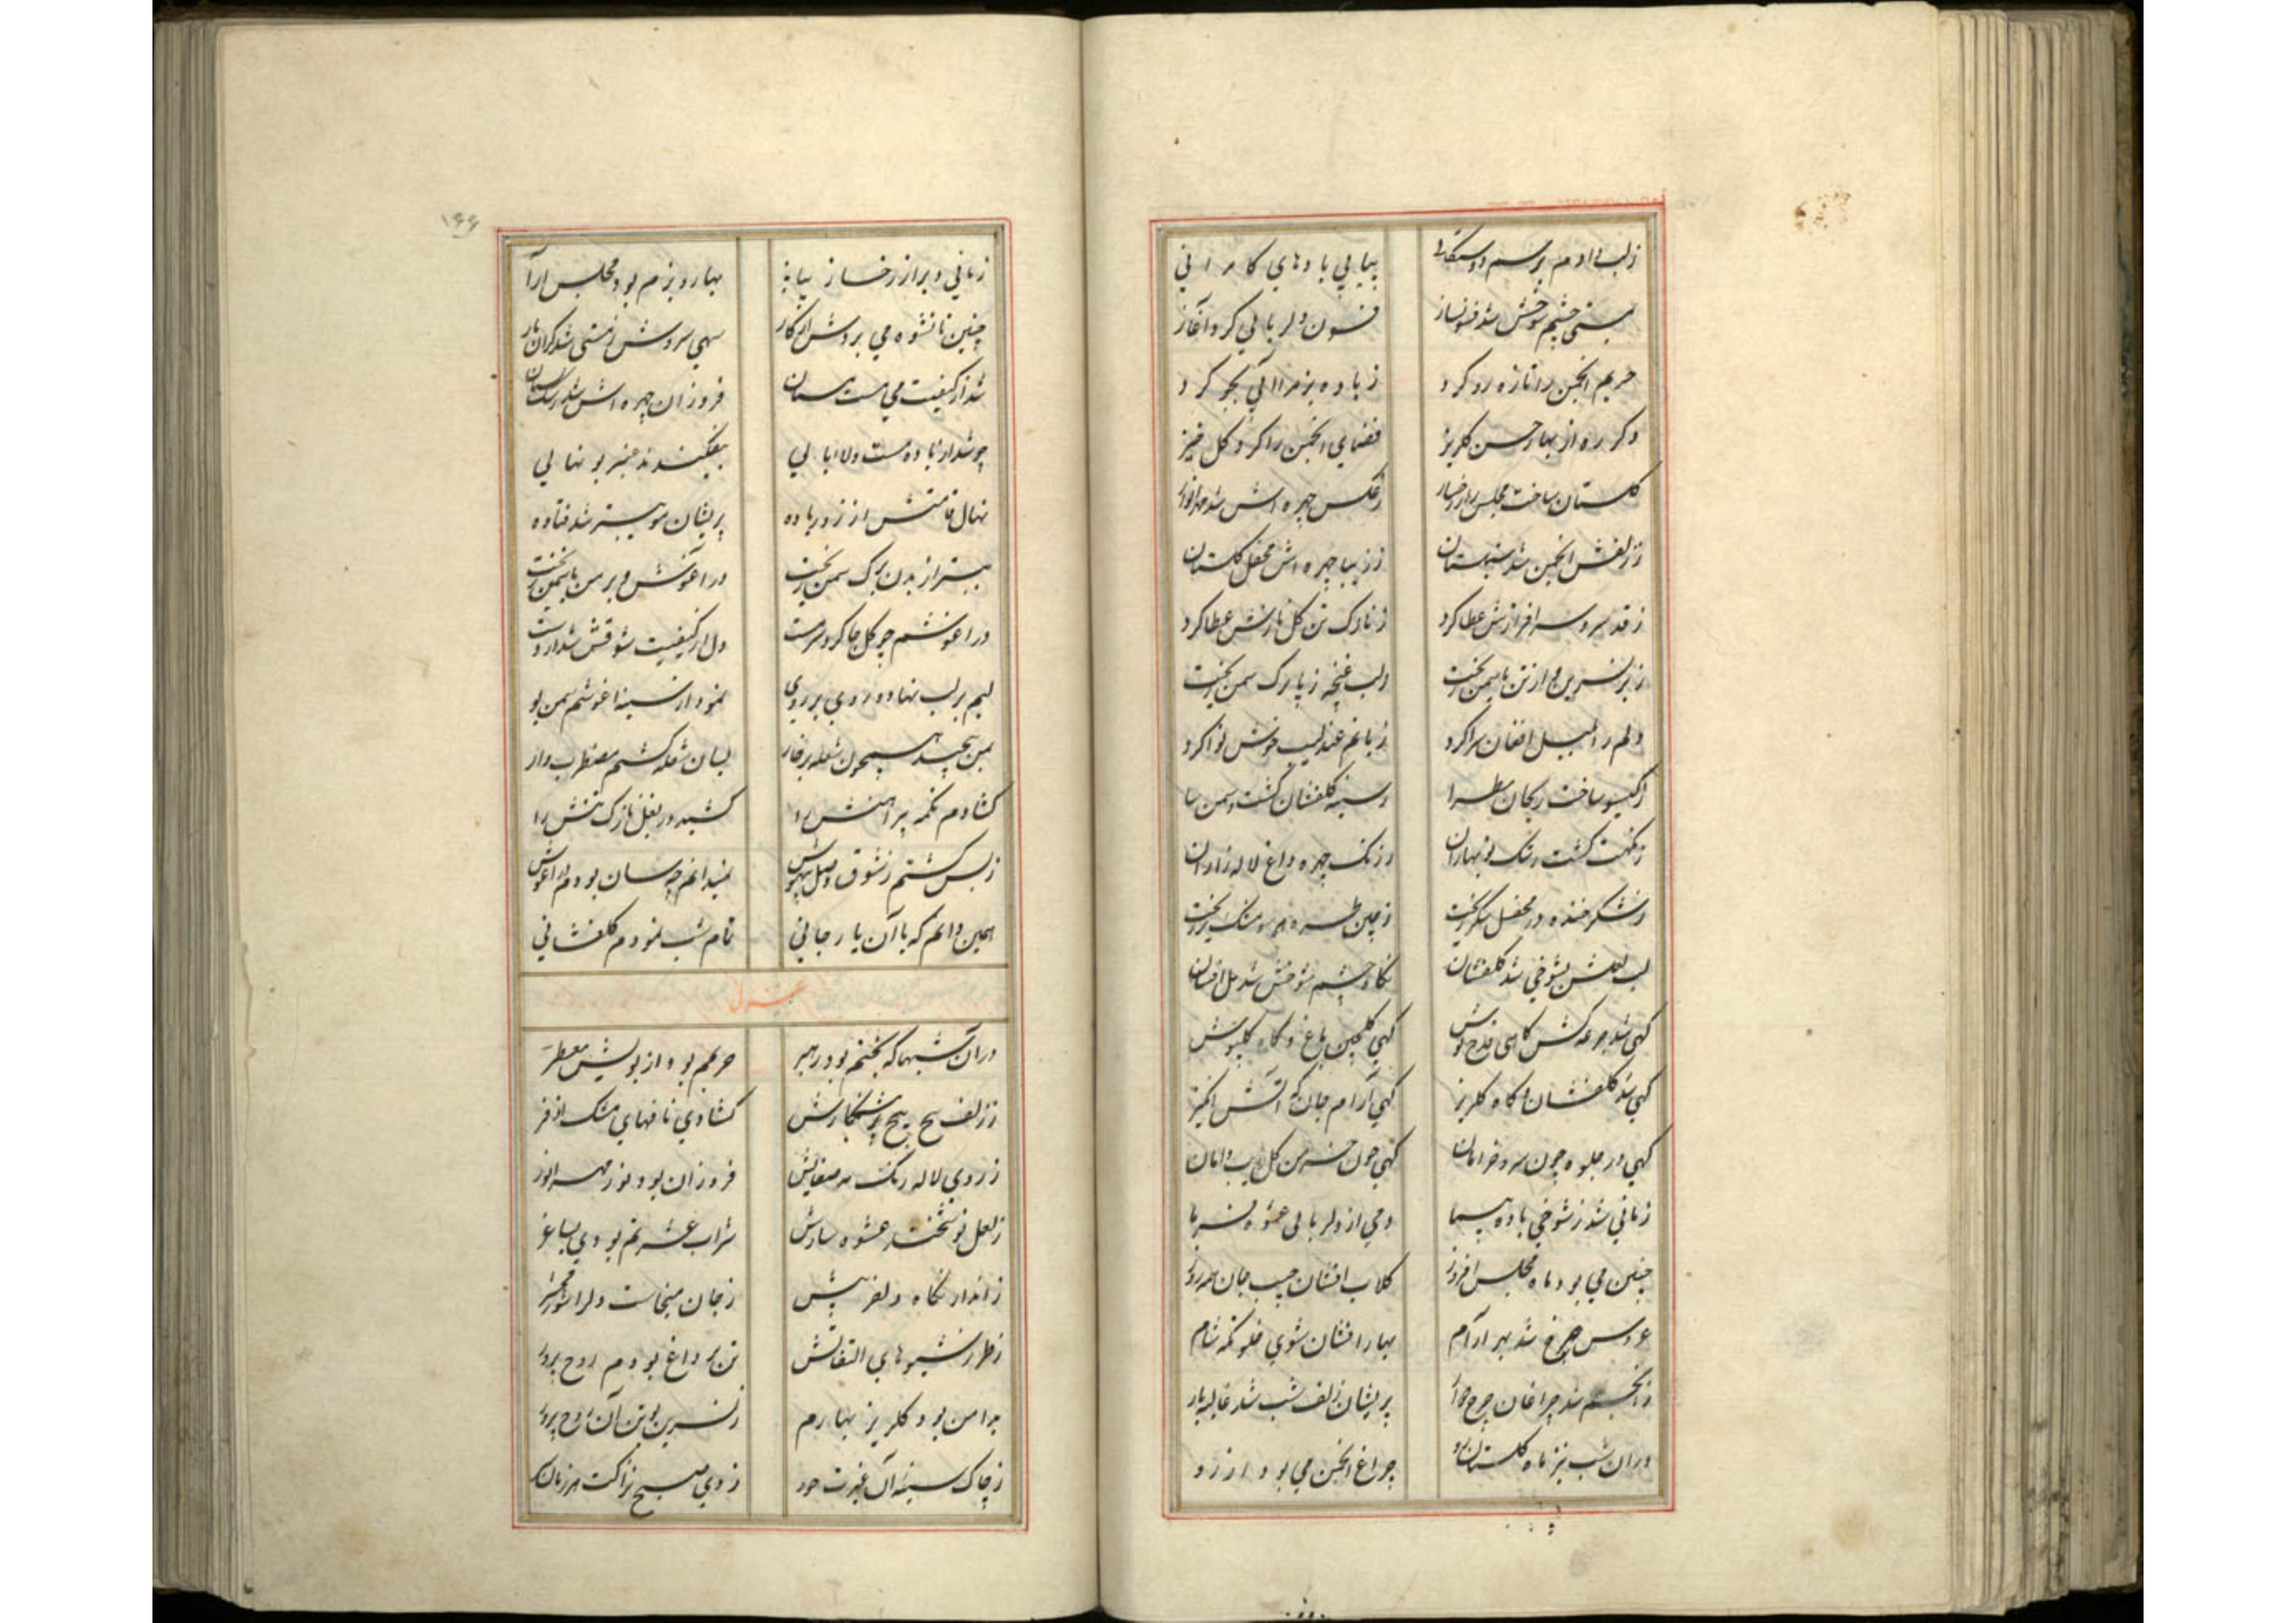 پیاپی بادهای کامرانی
بمستی چشم شوخش شد فسونساز فسون دلربائی کرد آغاز
حریم انجمن را تازه رو کرد ز باده بزم را
دکر ره از بهار حسن کلریز فضای انجمن را کرد کل خیز
کلستان ساخت مجلس را ز رخسار ز عکس چهره اش شد
ز زلفش انجمن شد سنبلستان ز زیبا چهره اش محفل کلستان
ز قد سرو سرافرازش عطا کرد ز نازک تن کل نازش عطا کرد
ز بر نسرین و از تن یاسمن ریخت ز لب غنچه ز پا برک سمن ریخت
دلم را بلبل افغان سرا کرد زبانم عندلیب خوش نوا کرد
ز کیسو ساخت ریحان مطرا ز سینه کلفشان کشت و سمن سا
ز نکهت کشت رشک نوبهاران ز رنک چهره داغ لاله زاران
ز شکر خنده در محفل شکر ریخت ز چین طره هر سو مشک تر ریخت
لب لعلش بشوخی شد کلفشان نکاه چشم شوخش شد مل افشان
کهی شد جرعه کش کاهی قدح نوش کهی کلچین باغ و کاه کلپوش
کهی شد کلفشان و کاه کلریز کهی آرام جان که آتش انکیز
کهی در جلوه چون سرو خرامان کهی چون خرمن کل زیب دامان
زمانی شد ز شوخی باده پیما دمی از دلربائی عشوه فرما
چنین می بود ماه مجلس افروز کلاب افشان جیب جان همه روز
عروس چرخ شد بهر آرام بهار افشان شوی خلوتکه شام
ز انجم شد چراغان چرخ پریشان زلف شب شد غالیه بار
دران شب نیز ماه کلستان رو چراغ انجمن می بود از رو
۱۶۶
زمانی دیر از رخسار زیبا بهار و بزم بود و مجلس آرا
چنین تا نشوه می بردش از کار سهی سروش ز مستی شد کران بار
شد از کیفیت می مست مستان فروزان چهره اش شد رشک بستان
چو شد از باده مست و لاابالی بیفکندند عنبر بو نهالی
نهال قامتش از زور باده پریشان مو به بستر شد فتاده
ببستر از بدن برک سمن ریخت در آغوش و بر من یاسمن ریخت
در آغوشم چو کل جا کرد سرمست دل از کیفیت شوقش شد از دست
لبم بر لب نهاده روی بر روی نمود از سینه آغوشم سمن بوی
بمن پیچید همچون شعله بر خار بسان شعله کشتم مضطرب وار
کشادم تکمه پیراهنش را کشیدم در بغل نازک تنش را
ز بس کشتم ز شوق وصل بیهوش نمیدانم چه سان بودم در آغوش
همین دانم که با آن یار جانی تمام شب نمودم کلفشانی
غزل
دران شبها که بختم بود رهبر حریمم بود از بویش معطر
ز زلف پیچ پیچ کشادی نافهای مشک اذفر
ز روی لاله رنک مه صفایش فروزان بود نور مهر انور
ز لعل نوشخند عشوه سازش شراب عشرتم بودی بساغر
ز انداز نکاه دلفریبش ز جان میخاست دلرا شور محشر
ز طرز شیوهای التفاتش تن پر داغ بودم روح پرور
بدامن بود کلریز بهارم ز نسرین بوی تن آن روح پرور
ز چاک سینه آن غیرت حور ز دی صبح نزاکت هر زمان